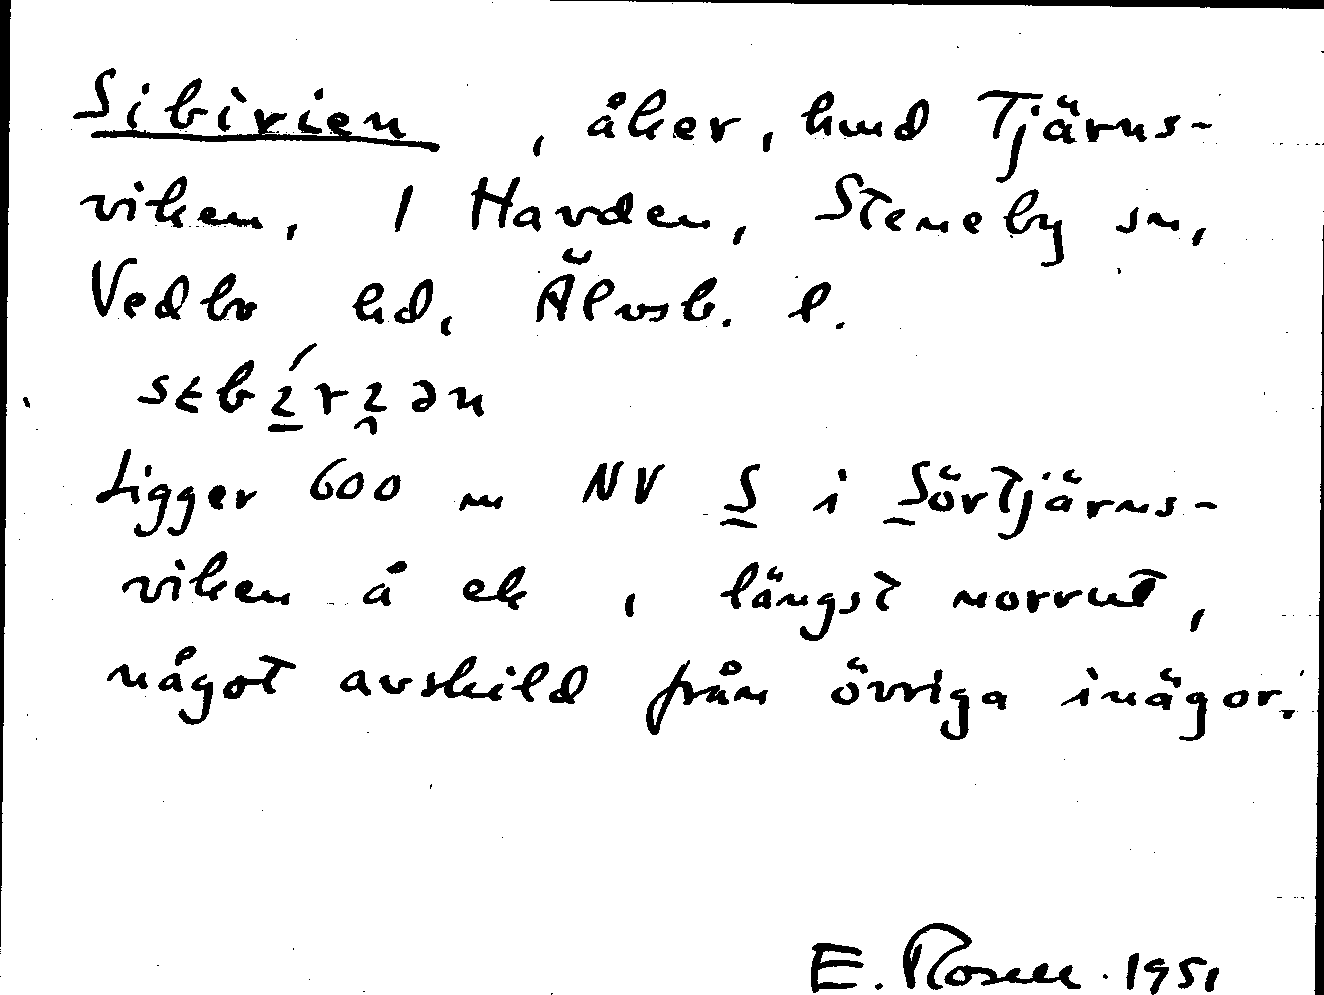 Sibirien, åker, hmd Tjärns-
viken, 1 Havden, Steneby sn,
Vedbo hd, Älvsb. l.
Ligger 600 m NV S i Sörtjärns-
viken å ek, längst norrut,
något avskild från övriga inägor.
E. Rosell. 1951